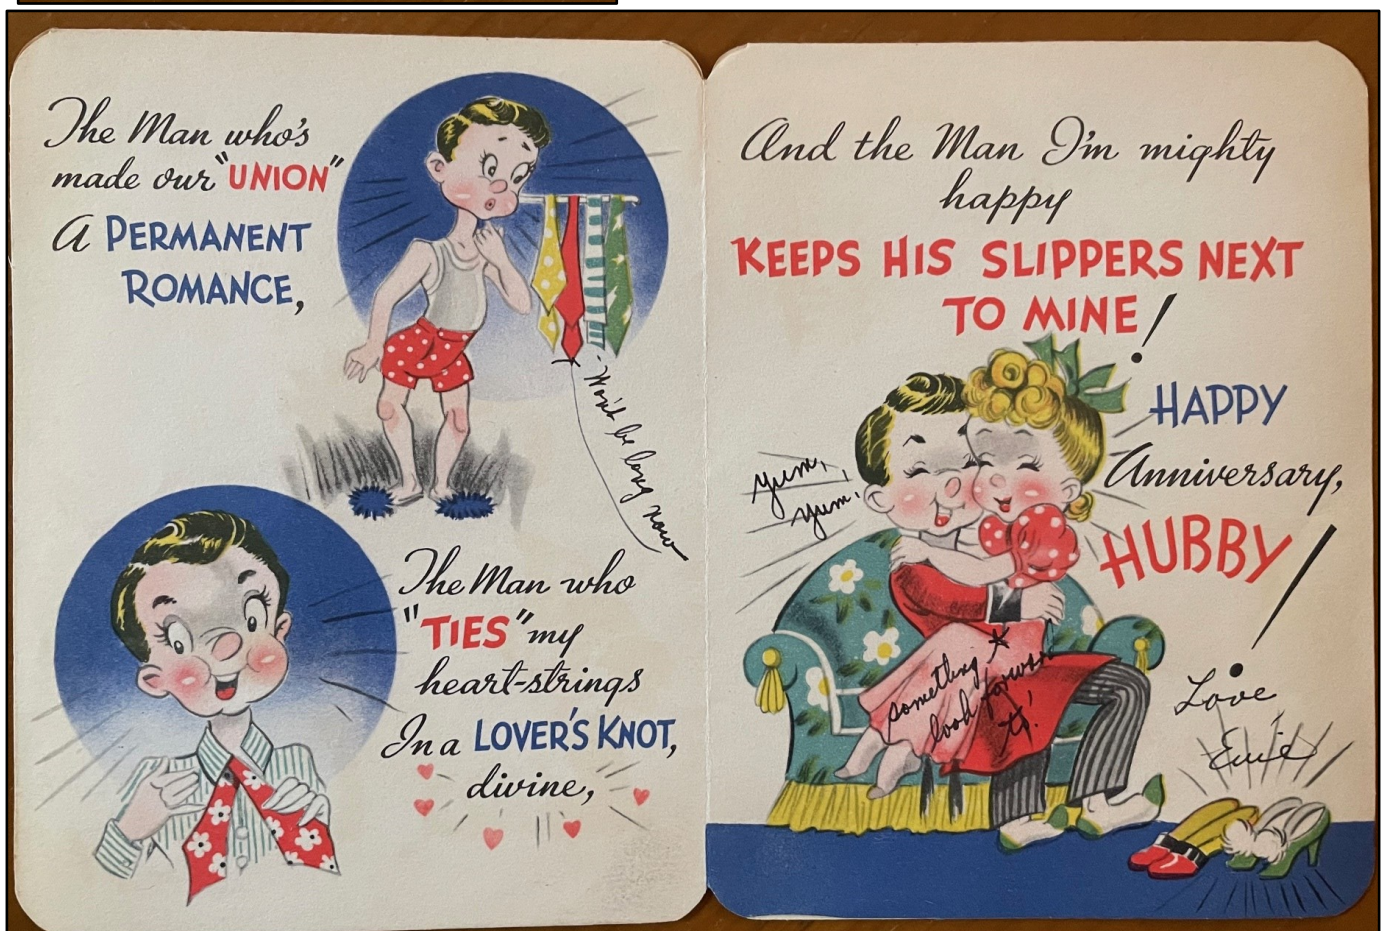 The Man who's
made our "UNION"
A PERMANENT
ROMANCE,
Won't be long now
The Man who
"TIES" my
heart-strings
In a LOVER'S KNOT,
divine,
And the Man I'm mighty
happy
KEEPS HIS SLIPPERS NEXT
TO MINE!
HAPPY
Anniversary,
HUBBY!
yum,
yum.
something *
look forward
to!
Love